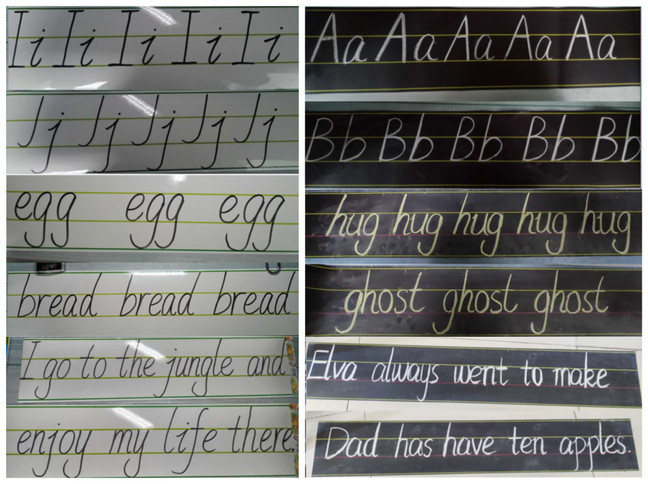 Ii Ii Ii Ii Ii
Jj Jj Jj Jj Jj
egg egg egg
bread bread bread
I go to the jungle and
enjoy my life there.
Aa Aa Aa Aa Aa
Bb Bb Bb Bb Bb
hug hug hug hug hug
ghost ghost ghost
Elva always went to make
Dad has have ten apples.